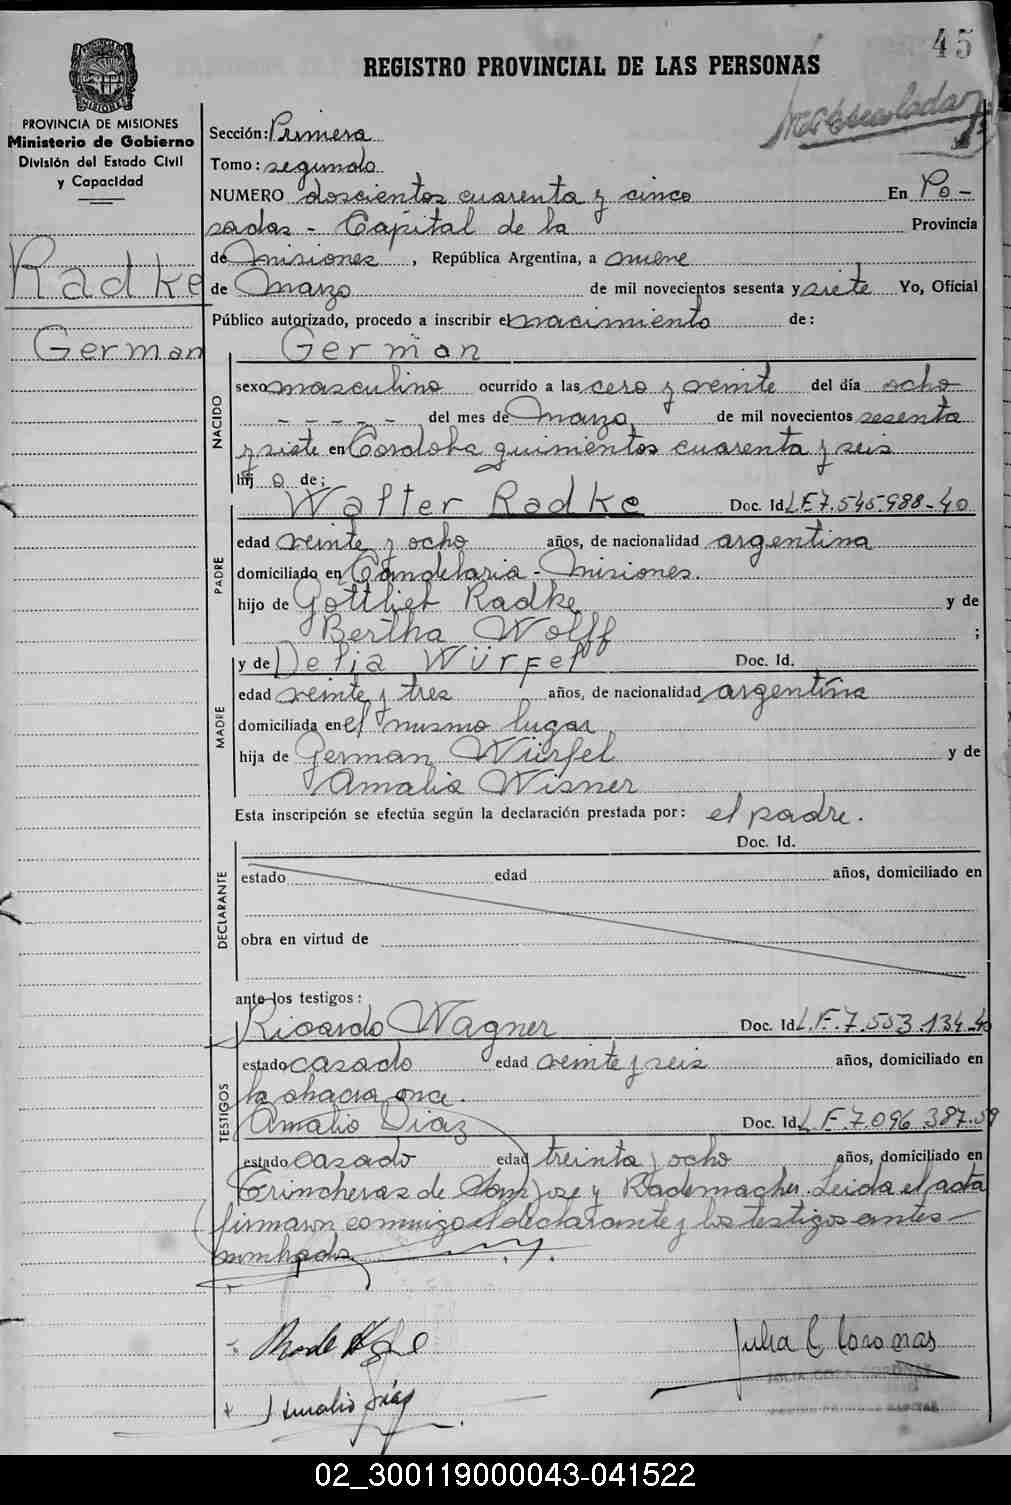 45
REGISTRO PROVINCIAL DE LAS PERSONAS
PROVINCIA DE MISIONES
Ministerio de Gobierno
División del Estado Civil
y Capacidad
Radke
German
Sección: Primera
Tomo: segundo
NUMERO doscientos cuarenta y cinco En Po-
sadas - Capital de la Provincia
de Misiones, República Argentina, a nueve
de Marzo de mil novecientos sesenta y siete Yo, Oficial
Público autorizado, procedo a inscribir el nacimiento de:
German
NACIDO
sexo masculino ocurrido a las cero y veinte del día ocho
- - - - - del mes de Marzo de mil novecientos sesenta
y siete en Cordoba quinientos cuarenta y seis
hij o de:
PADRE
Walter Radke Doc. Id. L E 7.545.988-40
edad veinte y ocho años, de nacionalidad argentina
domiciliado en Candelaria - Misiones.
hijo de Gottlieb Radke y de
Bertha Wolff ;
MADRE
y de Delia Würfel Doc. Id.
edad veinte y tres años, de nacionalidad argentina
domiciliada en el mismo lugar
hija de German Würfel y de
Amalia Wisner
Esta inscripción se efectúa según la declaración prestada por: el padre.
DECLARANTE
Doc. Id.
estado edad años, domiciliado en
obra en virtud de
ante los testigos:
TESTIGOS
Ricardo Wagner Doc. Id. L.E. 7.553.134-40
estado casado edad veinte y seis años, domiciliado en
la chacra once.
Amalio Diaz Doc. Id. L E 7.096.387.59
estado casado edad treinta y ocho años, domiciliado en
Trincheras de San Jose y Rademacher. Leida el acta
firmaron conmigo el declarante y los testigos antes
nombrados
Amalio Díaz
02_300119000043-041522